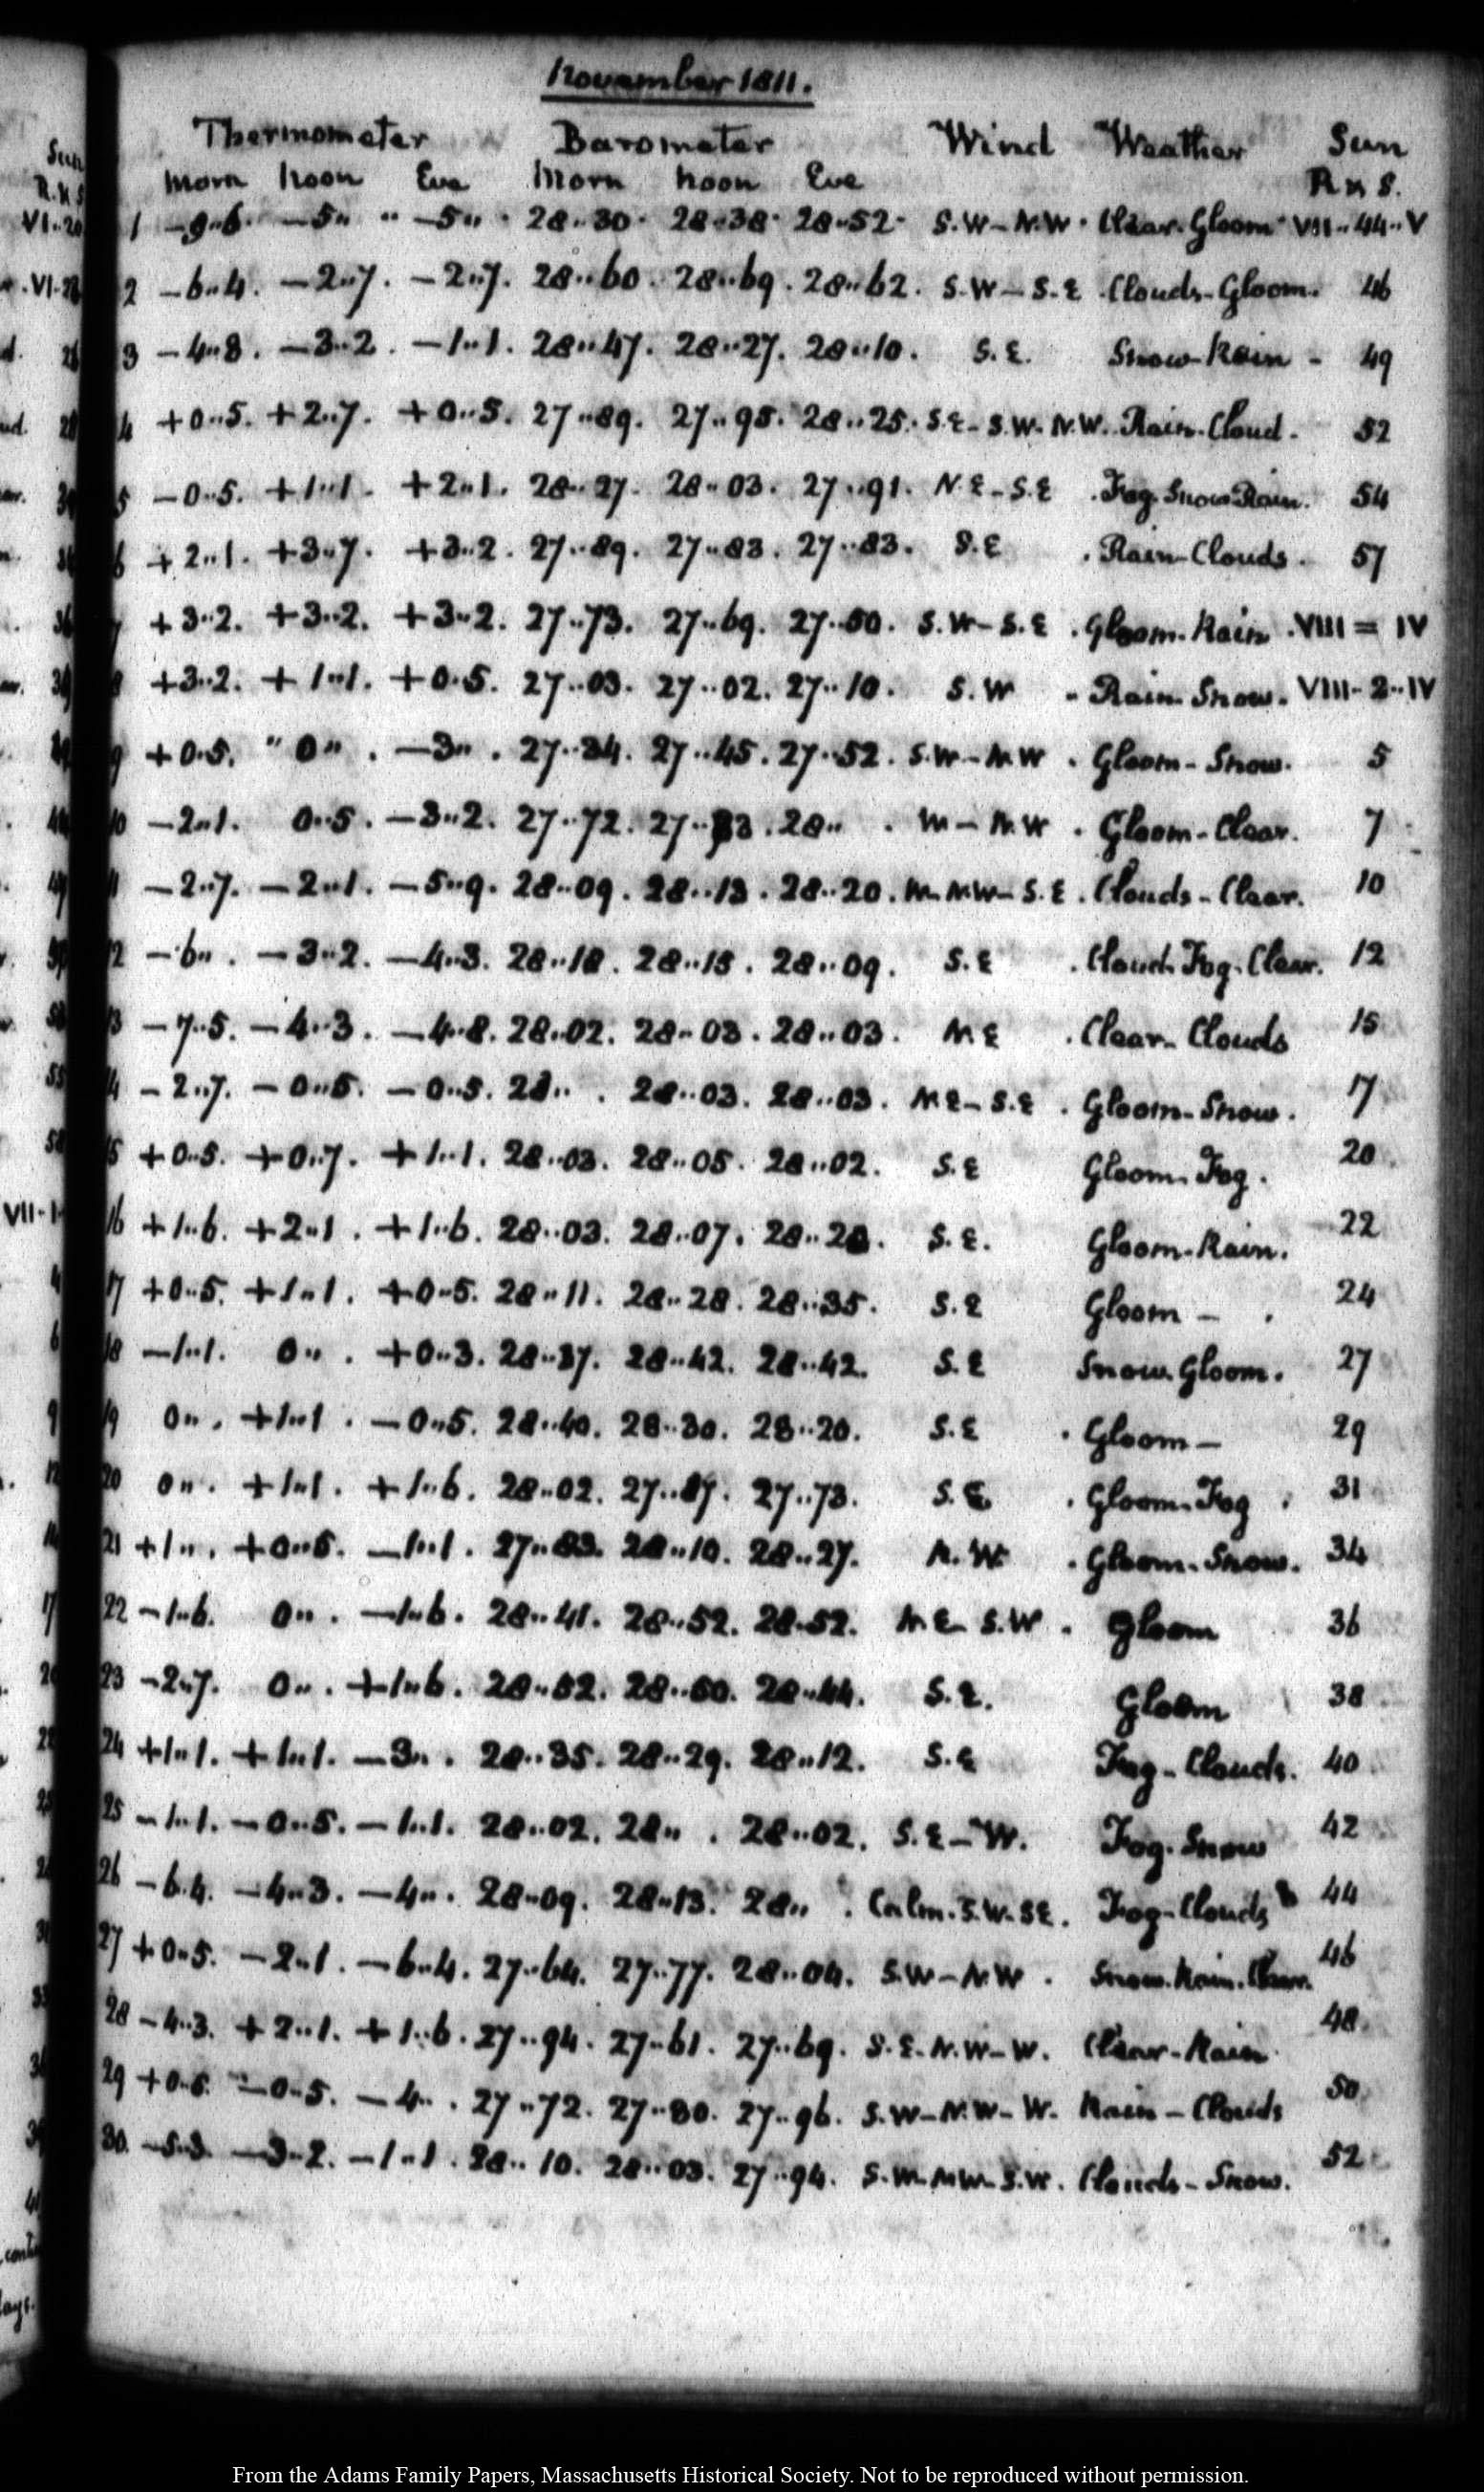 November 1811.
Thermometer Barometer Wind Weather Sun
Morn Noon Eve Morn Noon Eve R u S.
1 –9..6. –5.. " –5.. . 28..30. 28..38. 28..52. S.W – N.W. Clear. Gloom. VII..44..V
2 –6..4. –2..7. –2..7. 28..60. 28..69. 28..62. S.W – S.E. Clouds-Gloom. 46
3 –4..8. –3..2. –1..1. 28..47. 28..27. 28..10. S.E. Snow-Rain – 49
4 +0..5. +2..7. +0..5. 27..89. 27..95. 28..25. S.E – S.W. N.W. Rain-Cloud. 52
5 –0..5. +1..1. +2..1. 28..27. 28..03. 27..91. N.E – S.E. Fog. Snow Rain. 54
6 +2..1. +3..7. +3..2. 27..89. 27..83. 27..83. S.E. Rain-Clouds. 57
7 +3..2. +3..2. +3..2. 27..73. 27..69. 27..50. S.W – S.E. Gloom-Rain. VIII = IV
8 +3..2. +1..1. +0..5. 27..03. 27..02. 27..10. S.W. Rain-Snow. VIII-2..IV
9 +0..5. " 0.. . –3.. . 27..34. 27..45. 27..52. S.W – N.W. Gloom-Snow. 5
10 –2..1. 0..5. –3..2. 27..72. 27..83. 28.. . N – N.W. Gloom-Clear. 7
11 –2..7. –2..1. –5..9. 28..09. 28..13. 28..20. N. N.W – S.E. Clouds-Clear. 10
12 –6.. . –3..2. –4..3. 28..18. 28..15. 28..09. S.E. Cloud. Fog. Clear. 12
13 –7..5. –4..3. –4..8. 28..02. 28..03. 28..03. N E. Clear-Clouds 15
14 –2..7. –0..5. –0..5. 28.. . 28..03. 28..03. N E – S.E. Gloom-Snow. 17
15 +0..5. +0..7. +1..1. 28..03. 28..05. 28..02. S.E Gloom-Fog. 20
16 +1..6. +2..1. +1..6. 28..03. 28..07. 28..28. S.E. Gloom-Rain. 22
17 +0..5. +1..1. +0..5. 28..11. 28..28. 28..35. S.E Gloom – . 24
18 –1..1. 0.. . +0..3. 28..37. 28..42. 28..42. S.E Snow. Gloom. 27
19 0.. . +1..1. –0..5. 28..40. 28..30. 28..20. S.E. Gloom – 29
20 0.. . +1..1. +1..6. 28..02. 27..87. 27..73. S.E. Gloom-Fog. 31
21 +1.. . +0..5. –1..1. 27..83. 28..10. 28..27. N.W. Gloom-Snow. 34
22 –1..6. 0.. . –1..6. 28..41. 28..52. 28..52. N E – S.W. Gloom 36
23 –2..7. 0.. . +1..6. 28..52. 28..50. 28..44. S.E. Gloom 38
24 +1..1. +1..1. –3.. . 28..35. 28..29. 28..12. S.E Fog-Clouds. 40
25 –1..1. –0..5. –1..1. 28..02. 28.. . 28..02. S.E – W. Fog-Snow 42
26 –6..4. –4..3. –4.. . 28..09. 28..13. 28.. . Calm. S.W. SE. Fog-Clouds 44
27 +0..5. –2..1. –6..4. 27..64. 27..77. 28..04. S.W – N.W. Snow. Rain. Clear. 46
28 –4..3. +2..1. +1..6. 27..94. 27..61. 27..69. S.E. N.W – W. Clear-Rain 48
29 +0..5. –0..5. –4.. . 27..72. 27..80. 27..96. S.W – N.W – W. Rain-Clouds 50
30. –5..3. –3..2. –1..1. 28..10. 28..03. 27..94. S.W. NW – S.W. Clouds-Snow. 52
From the Adams Family Papers, Massachusetts Historical Society. Not to be reproduced without permission.